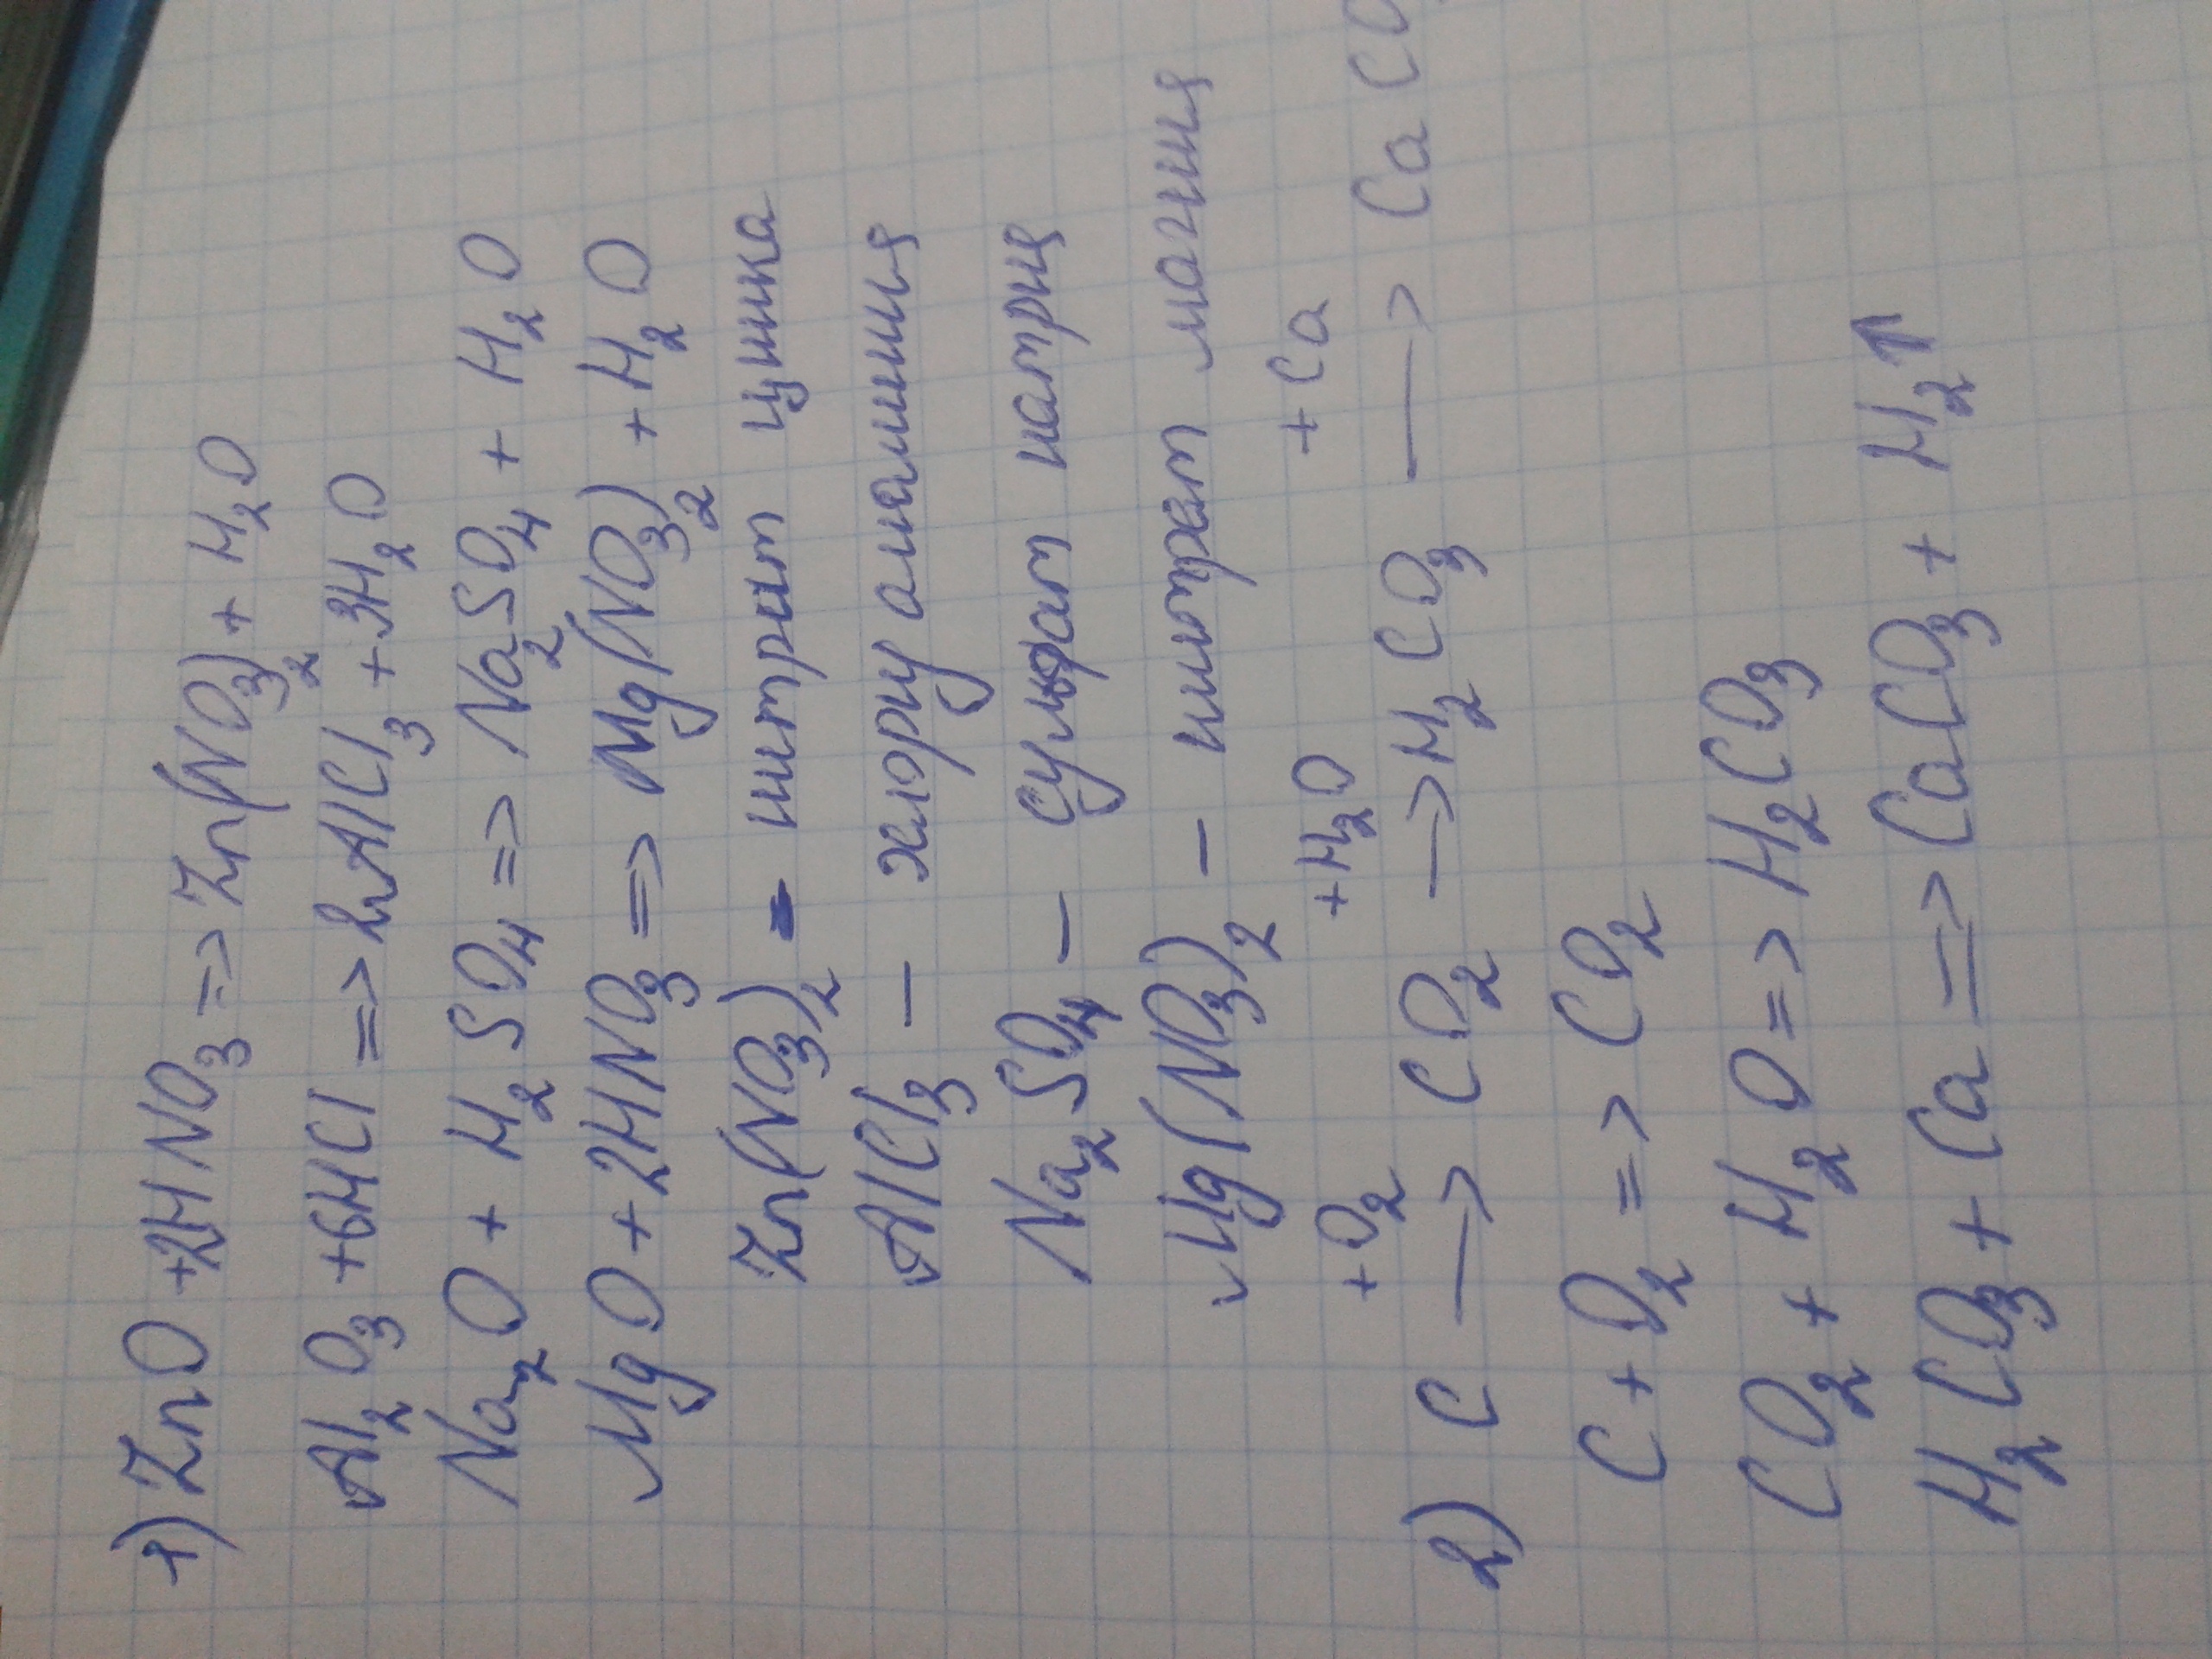 1) ZnO + 2HNO₃ => Zn(NO₃)₂ + H₂O
Al₂O₃ + 6HCl => 2AlCl₃ + 3H₂O
Na₂O + H₂SO₄ => Na₂SO₄ + H₂O
MgO + 2HNO₃ => Mg(NO₃)₂ + H₂O
Zn(NO₃)₂ - нитрат цинка
AlCl₃ - хлорид алюминия
Na₂SO₄ - сульфат натрия
Mg(NO₃)₂ - нитрат магния
+O₂ +H₂O +Ca
2) C → CO₂ → H₂CO₃ → CaCO
C + O₂ => CO₂
CO₂ + H₂O => H₂CO₃
H₂CO₃ + Ca => CaCO₃ + H₂↑